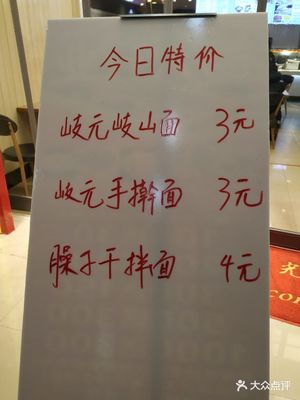 今日特价
岐元岐山面 3元
岐元手擀面 3元
臊子干拌面 4元
大众点评